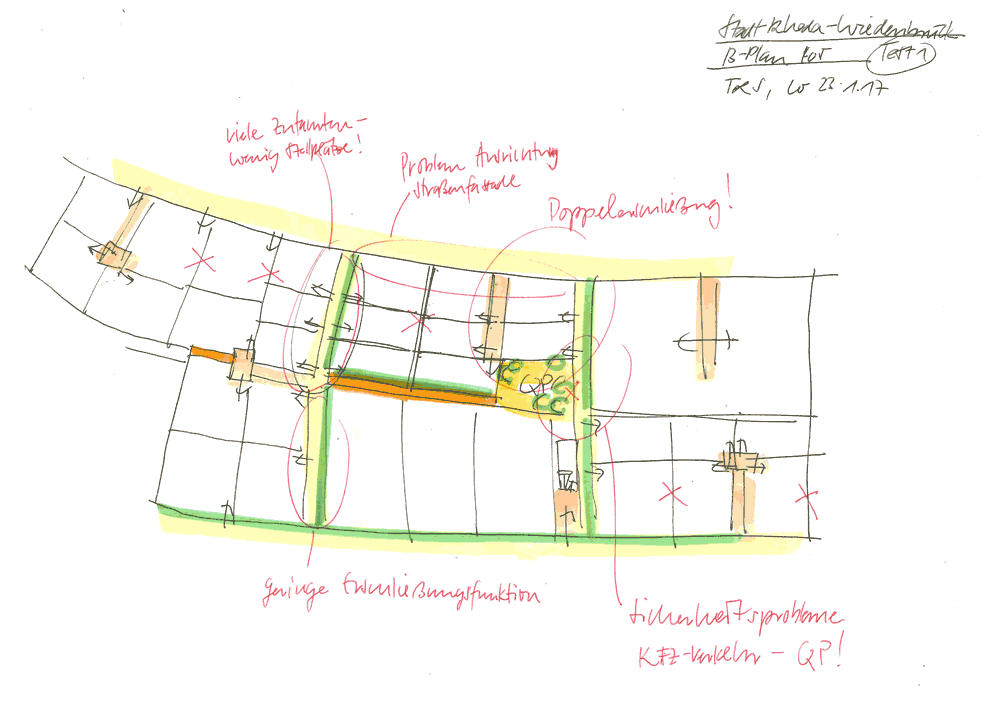 Stadt Rheda-Wiedenbrück
B-Plan Test 1
23.1.17
viele Zufahrten -
wenig Stellplätze!
Problem Ausrichtung
Straßenfassade
Doppelerschließung!
QP
geringe Erschließungsfunktion
Sicherheitsprobleme
KFZ-Verkehr - QP!